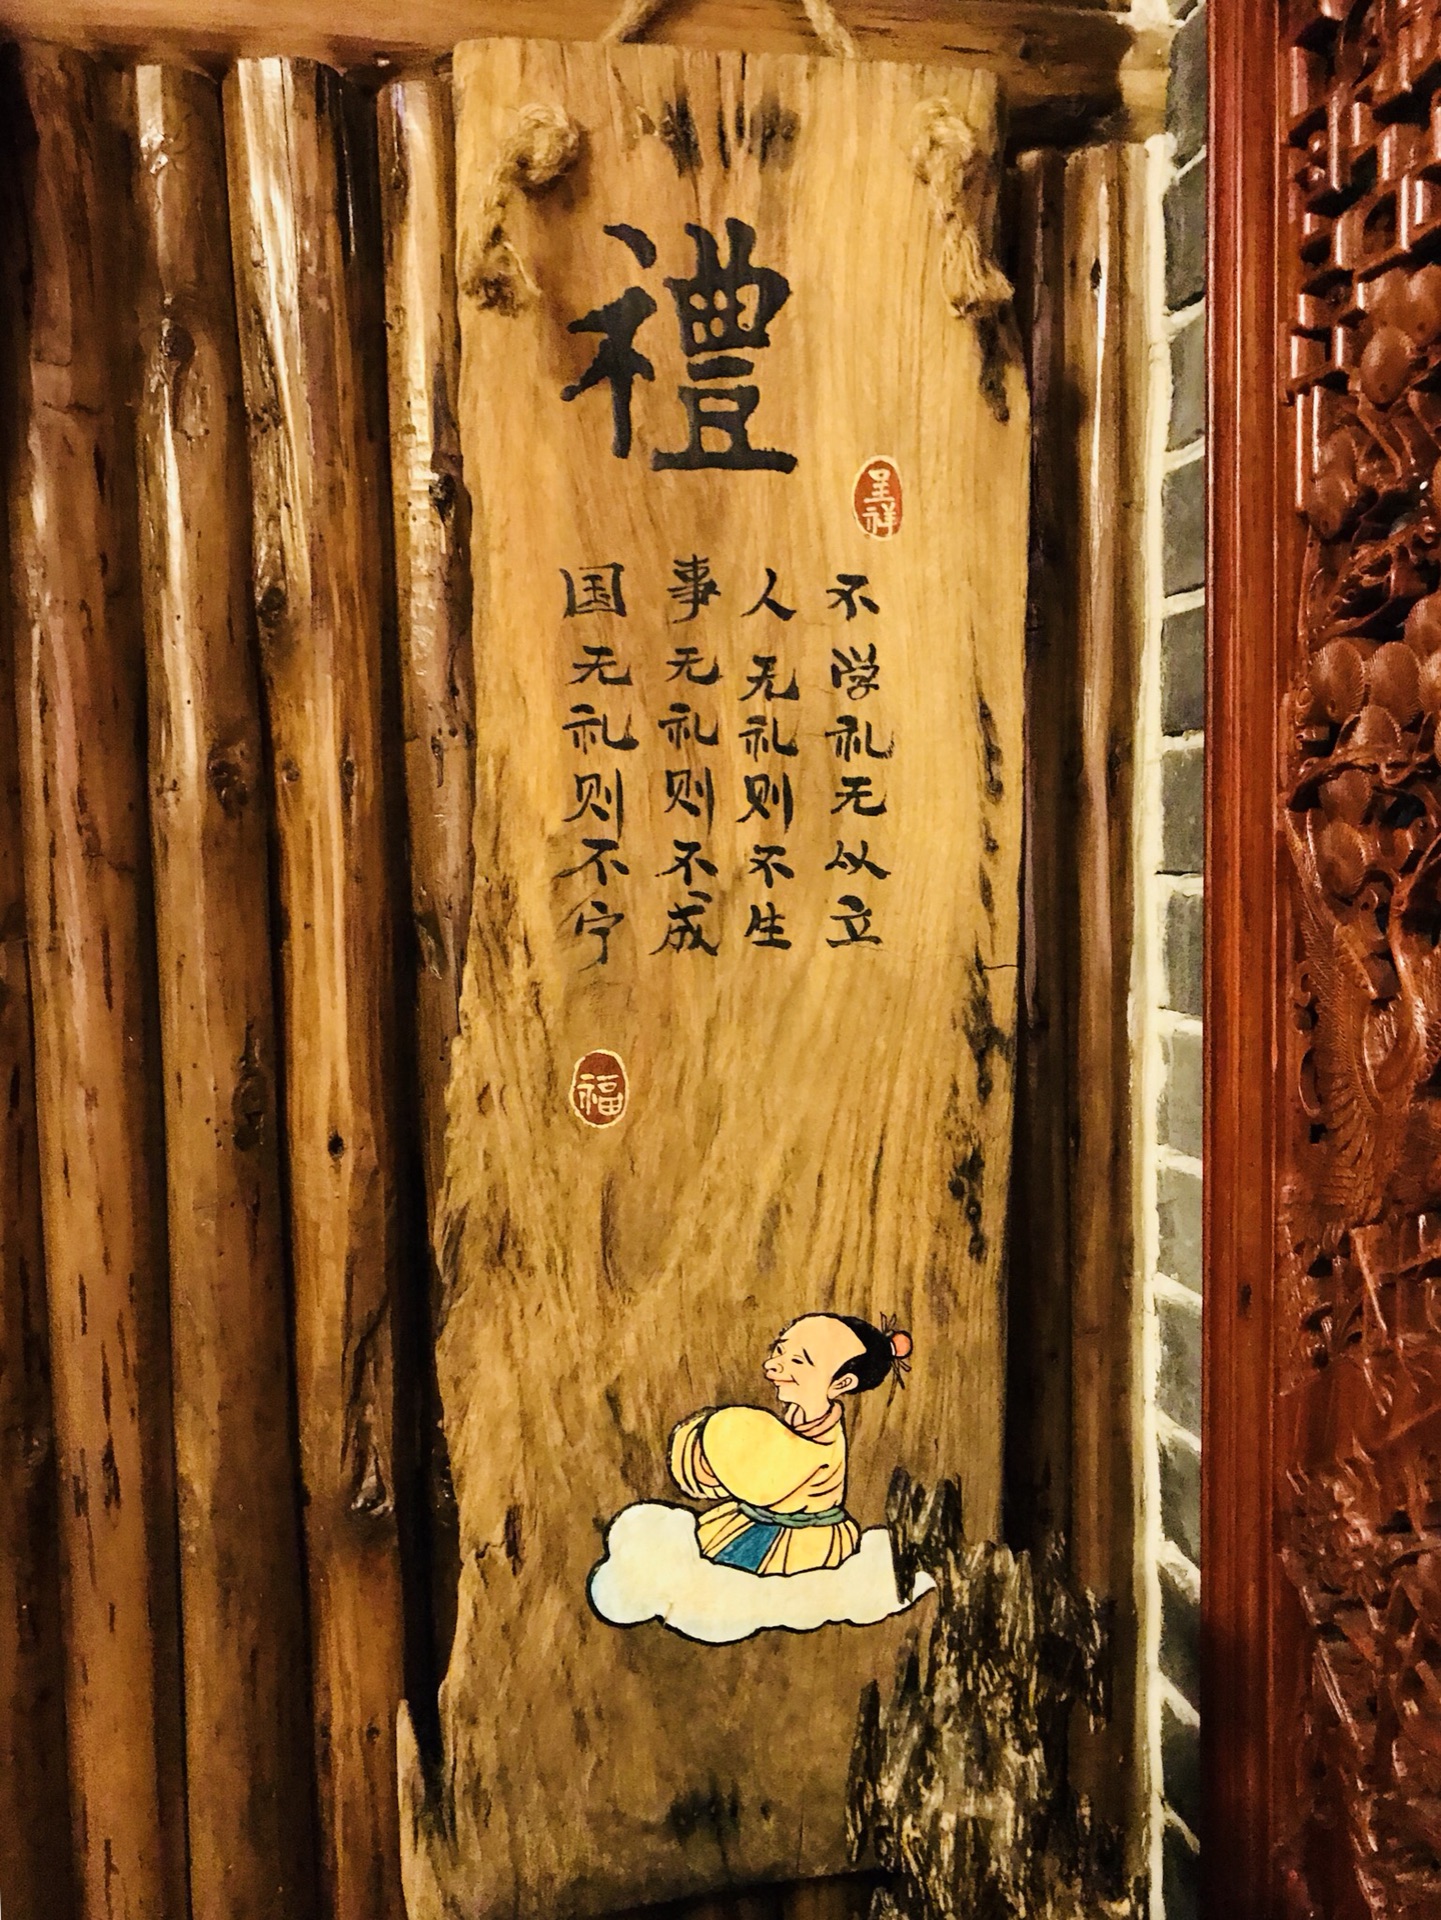 禮
呈祥
不学礼无从立
人无礼则不生
事无礼则不成
国无礼则不宁
福